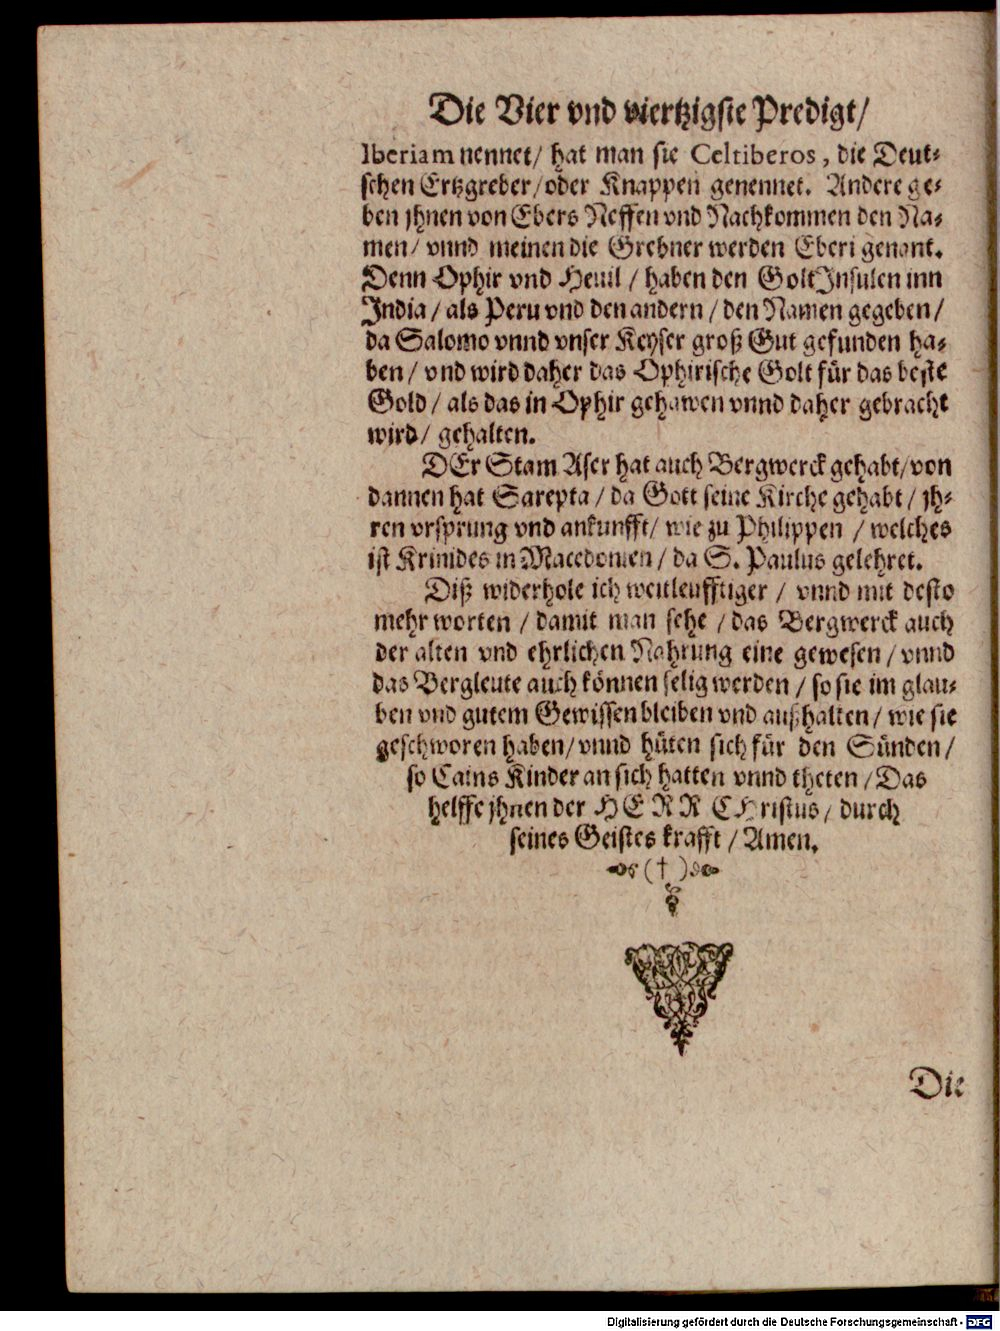 Die Vier vnd viertzigste Predigt/
Iberiam nennet/ hat man sie Celtiberos, die Deut-
schen Ertzgreber/oder Knappen genennet. Andere ge-
ben jhnen von Ebers Neffen vnd Nachkommen den Na-
men/ vnnd meinen die Grebner werden Eberi genant.
Denn Ophir vnd Heuil / haben den Golt Insulen inn
India / als Peru vnd den andern / den Namen gegeben/
da Salomo vnnd vnser Keyser groß Gut gefunden ha-
ben/ vnd wird daher das Ophirische Golt für das beste
Gold / als das in Ophir gehawen vnnd daher gebracht
wird/ gehalten.
DEr Stam Aser hat auch Bergwerck gehabt/von
dannen hat Sarepta / da Gott seine Kirche gehabt / jh-
ren vrsprung vnd ankunfft/ wie zu Philippen / welches
ist Krinides in Macedonien / da S. Paulus gelehret.
Diß widerhole ich weitleufftiger / vnnd mit desto
mehr worten / damit man sehe / das Bergwerck auch
der alten vnd ehrlichen Nahrung eine gewesen / vnnd
das Bergleute auch können selig werden / so sie im glau-
ben vnd gutem Gewissen bleiben vnd außhalten / wie sie
geschworen haben/ vnnd hüten sich für den Sünden/
so Cains Kinder an sich hatten vnnd theten / Das
helffe jhnen der HERR CHristus/ durch
seines Geistes krafft / Amen.
(†)
Die
Digitalisierung gefördert durch die Deutsche Forschungsgemeinschaft - DFG